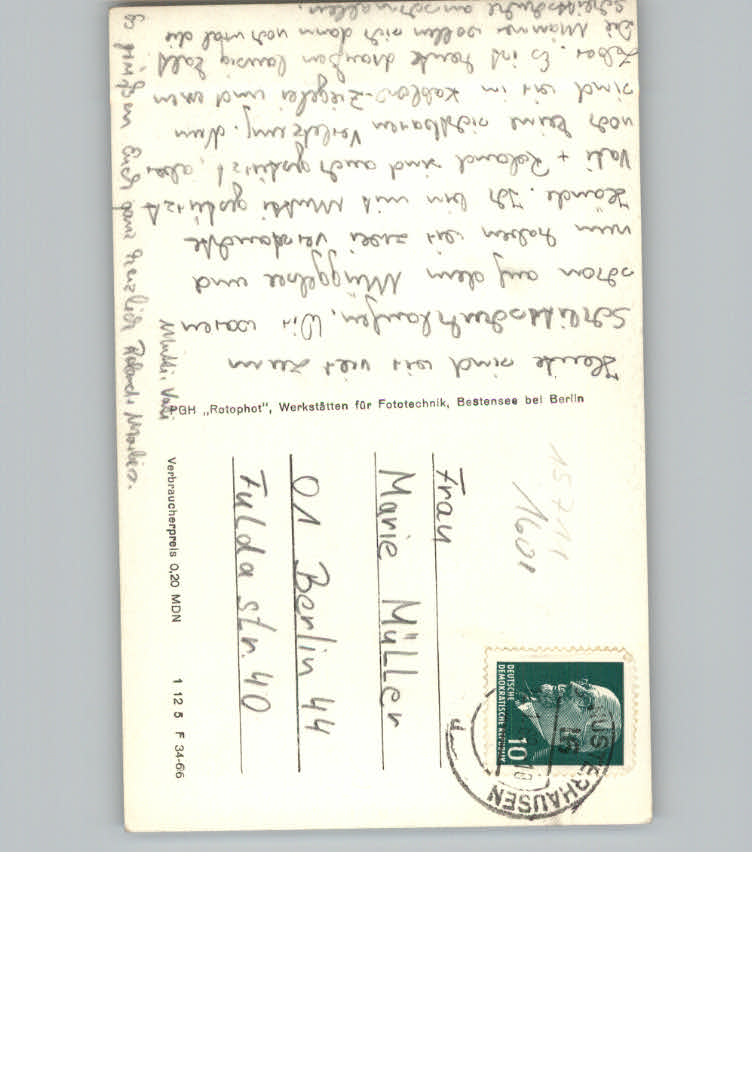 Heute sind wir vier zum
Schlittschuhlaufen. Wir waren
schon auf dem Müggelsee und
nun haben wir zwei verstauchte
Hände. Ich bin mit Mutti gestürzt
Vati + Roland sind auch gestürzt, aber
noch keine sichtbaren Verletzung. Nun
sind wir im Kablow-Ziegelei und essen
Es ist heute draußen lausig kalt
Die Männer wollen sich dann noch mal die
Schlittschuhe anschnallen.
Es grüßen Euch ganz herzlich Roland, Marlies.
Mutti, Vati
PGH „Rotophot", Werkstätten für Fototechnik, Bestensee bei Berlin
15711
1600
Frau
Marie Müller
01 Berlin 44
Fuldastr. 40
Verbraucherpreis 0,20 MDN
1 12 5 F 34-66
DEUTSCHE
DEMOKRATISCHE REPUBLIK
10
USTERHAUSEN